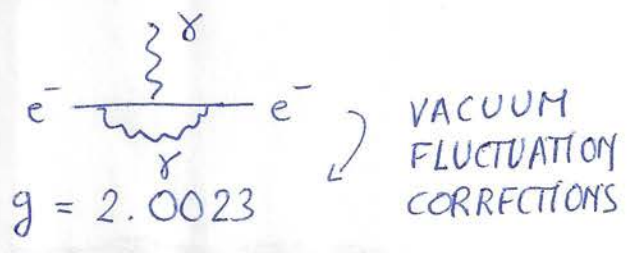 γ
e⁻ e⁻
γ
g = 2.0023
VACUUM
FLUCTUATION
CORRECTIONS